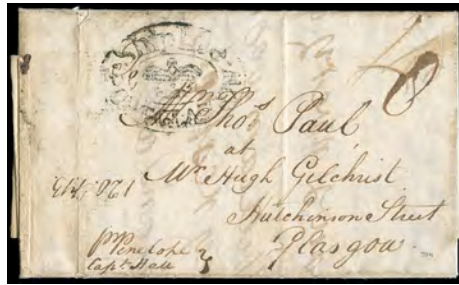 Mr Thos Paul
at
Mr Hugh Gilchrist
Hutchinson Street
Glasgow
pr Penelope
Capt Hall